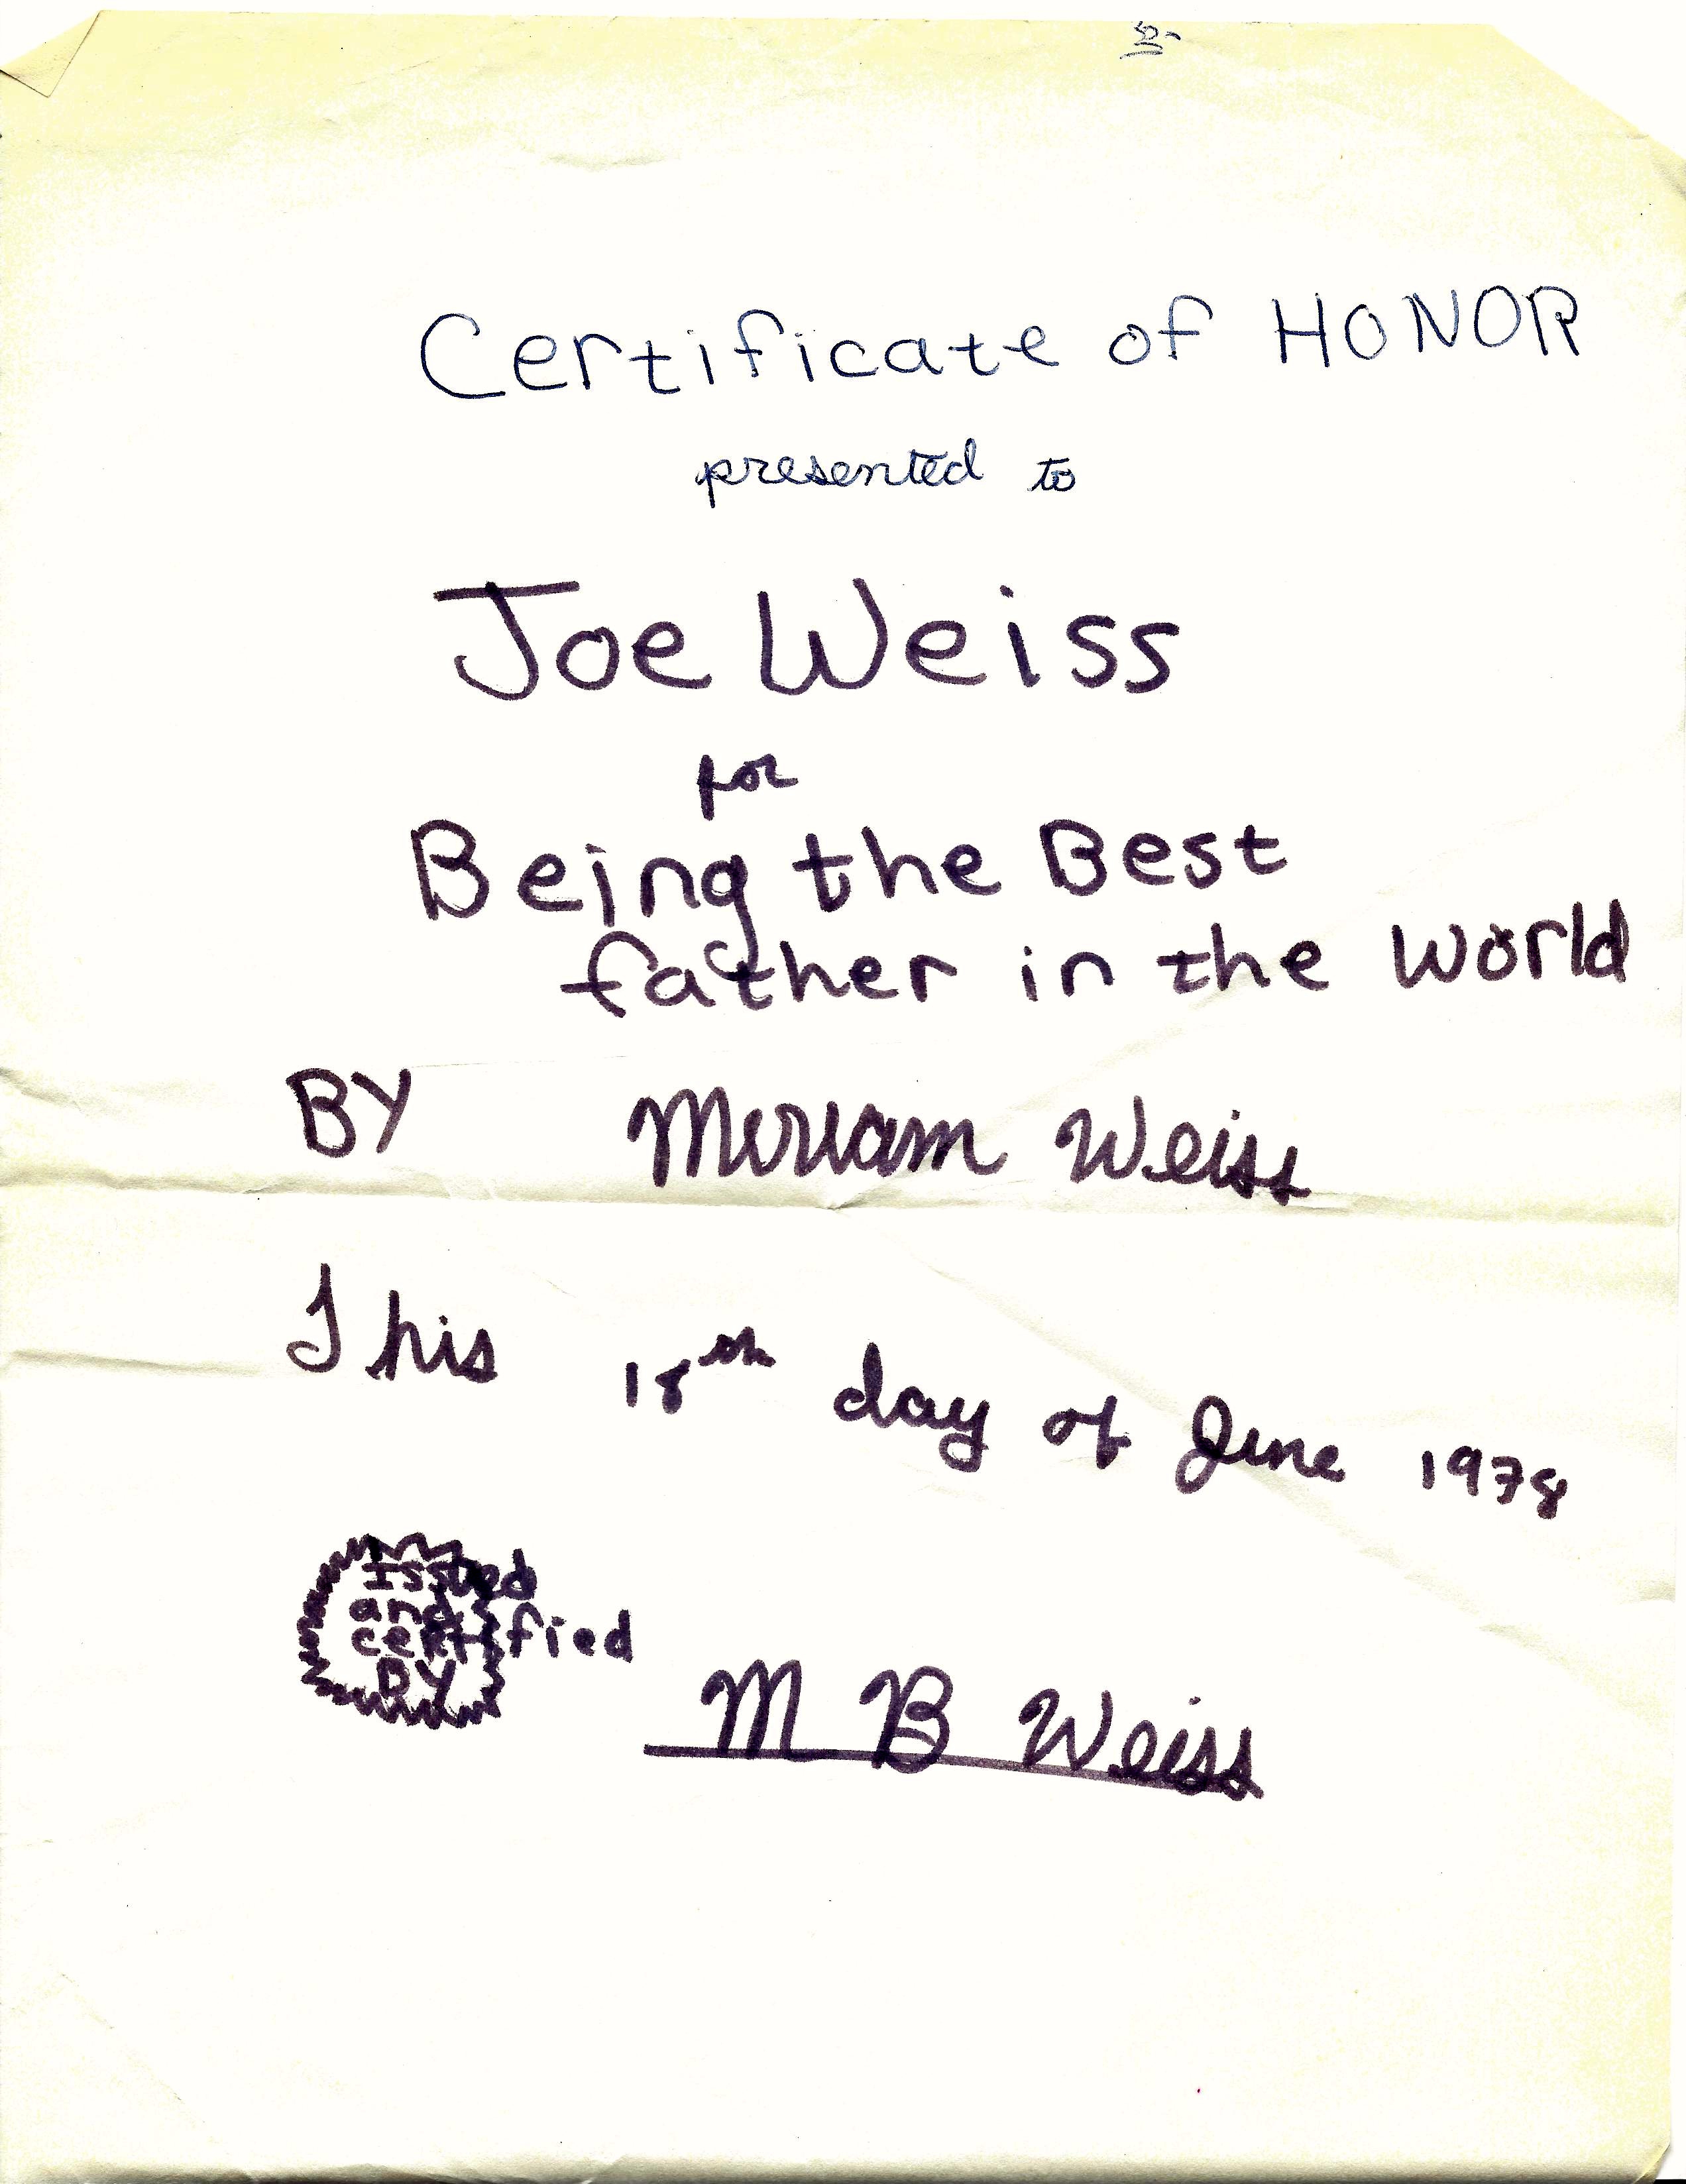 Certificate of HONOR
presented to
Joe Weiss
for
Being the Best
father in the World
BY Miriam Weiss
This 18th day of June 1978
Issued
and
certified
BY
M B Weiss